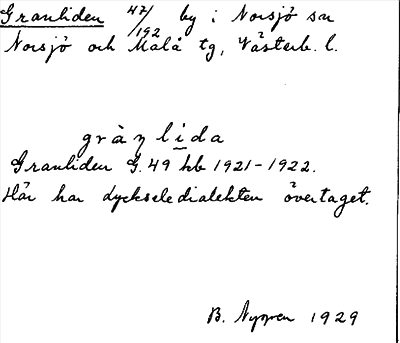 Granliden 47/192 by i Norsjö sn
Norsjö och Malå tg, Västerb. l.
grànlida
Granliden G. 49 hb 1921-1922.
Här har lyckseledialekten övertaget.
B. Nyman 1929